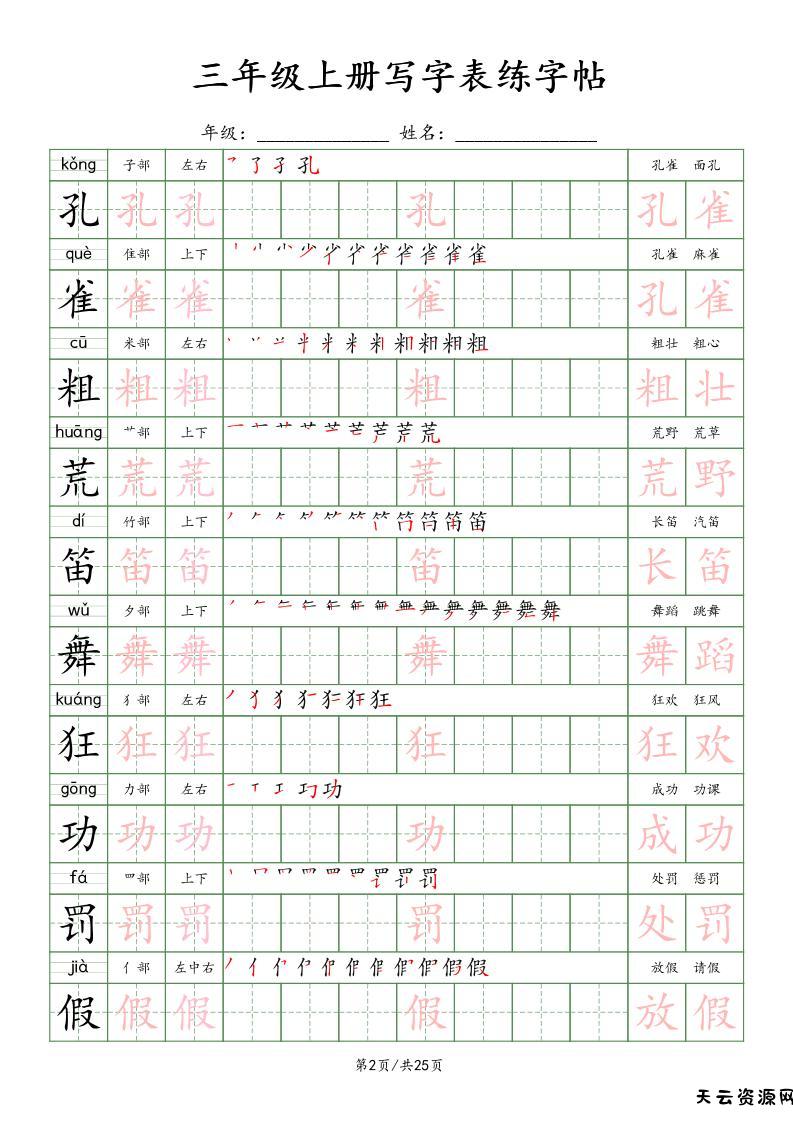 三年级上册写字表练字帖
年级：______________ 姓名：_______________
kǒng 子部 左右 孔雀 面孔
孔 孔 孔 孔 孔 雀
què 隹部 上下 孔雀 麻雀
雀 雀 雀 雀 孔 雀
cū 米部 左右 粗壮 粗心
粗 粗 粗 粗 粗 壮
huāng 艹部 上下 荒野 荒草
荒 荒 荒 荒 荒 野
dí 竹部 上下 长笛 汽笛
笛 笛 笛 笛 长 笛
wǔ 夕部 上下 舞蹈 跳舞
舞 舞 舞 舞 舞 蹈
kuáng 犭部 左右 狂欢 狂风
狂 狂 狂 狂 狂 欢
gōng 力部 左右 成功 功课
功 功 功 功 成 功
fá 罒部 上下 处罚 惩罚
罚 罚 罚 罚 处 罚
jià 亻部 左中右 放假 请假
假 假 假 假 放 假
第2页/共25页
天云资源网